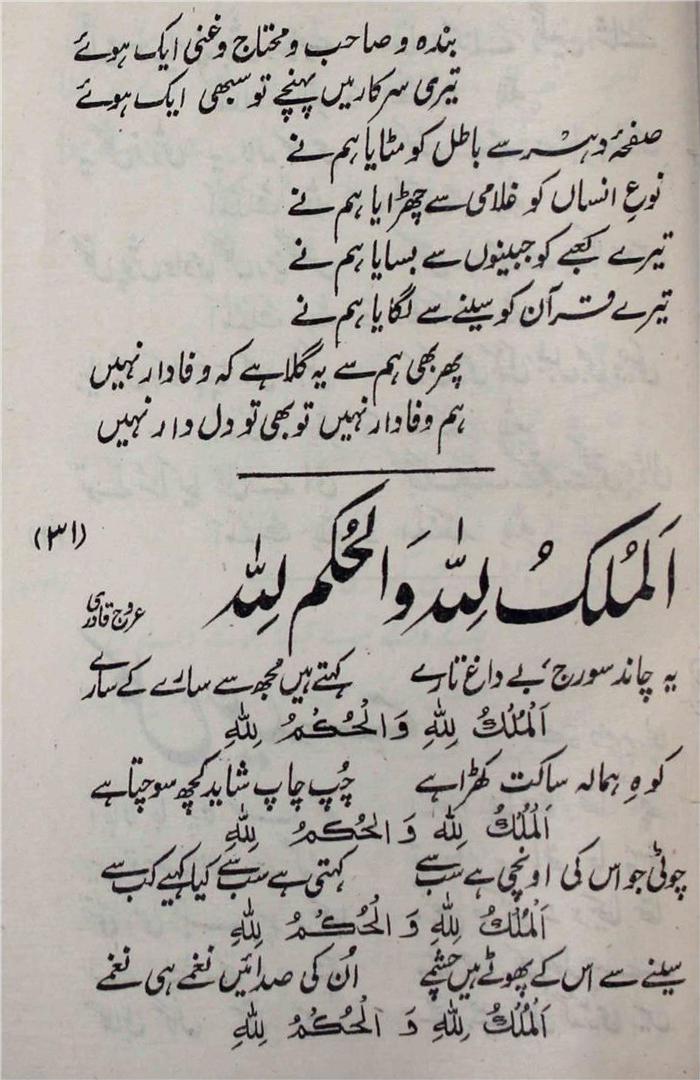 بندہ و صاحب و محتاج و غنی ایک ہوئے
تیری سرکار میں پہنچے تو سبھی ایک ہوئے
صفحۂ دہر سے باطل کو مٹایا ہم نے
نوعِ انساں کو غلامی سے چھڑایا ہم نے
تیرے کعبے کو جبینوں سے بسایا ہم نے
تیرے قرآن کو سینے سے لگایا ہم نے
پھر بھی ہم سے یہ گلا ہے کہ وفادار نہیں
ہم وفادار نہیں تو بھی تو دل دار نہیں
(۳۱)
اَلمُلکُ لِلّٰہِ وَالحُکم لِلّٰہ
عروج قادری
یہ چاند سورج، بے داغ تارے کہتے ہیں مجھ سے سارے کے سارے
اَلْمُلْكُ لِلّٰهِ وَالْحُكْمُ لِلّٰهِ
کوہِ ہمالہ ساکت کھڑا ہے چُپ چاپ شاید کچھ سوچتا ہے
اَلْمُلْكُ لِلّٰهِ وَ الْحُكْمُ لِلّٰهِ
چوٹی جو اس کی اونچی ہے سب سے کہتی ہے سب سے کیا کہیے کب سے
اَلْمُلْكُ لِلّٰهِ وَ الْحُكْمُ لِلّٰهِ
سینے سے اس کے پھوٹے ہیں چشمے اُن کی صدائیں نغمے ہی نغمے
اَلْمُلْكُ لِلّٰهِ وَ الْحُكْمُ لِلّٰهِ